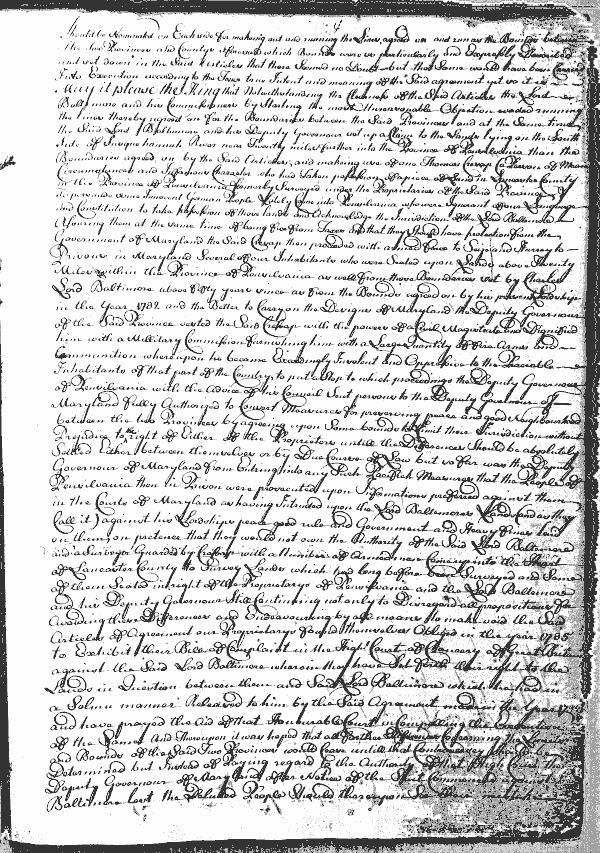 should be Nominated on Each side for making out and running the Lines agreed on and run as the Bounds between
the two Provinces and County aforesaid which Bounds were so particularly and Expressly Described
and set down in the Said Articles that there Seemed no Doubt but that Same would have been Carried
Into Execution according to the True Intent and meaning of the Said agreement yet so it is
May it please the King that Notwithstanding the Clearness of the Said Articles the Lord
Baltimore and his Commissioners by Starting the most Unreasonable Objection evaded running
the Lines thereby agreed on for the Boundaries between the Said Provinces and at the Same time
the Said Lord Baltimore and his Deputy Governour set up a Claim to the Lands lying on the South
Side of Susquehannah River near Twenty miles further into the Province of Pensilvania than the
Boundaries agreed on by the Said Articles, and making use of one Thomas Cresap a Person of Mean
Circumstances and Infamous Character who had Taken possession of a piece of Land in Lancaster County
in the Province of Pensilvania formerly Surveyed under the Proprietaries of the Said Province
to perswade some Innocent German People lately Come into Pensilvania who were Ignorant of our Language
and Constitution to take possession of those Lands and Acknowledge the Jurisdiction of the Said Baltimore
Assuring them at the same time of being free from Taxes and that they Should have protection from the
Government of Maryland the Said Cresap then proceeded with armed force to Seize and Hurry to
Prisons in Maryland Several of our Inhabitants who were Seated upon Lands above Twenty
Miles within the Province of Pensilvania as well from those Boundaries set by Charles
Lord Baltimore about fifty years since as from the Bounds agreed on by his present Lordship
in the Year 1732 and the Better to Carry on the Designs of Maryland the Deputy Governour
of the Said Province vested the Said Cresap with the power of a Civil Magistrate and Dignified
him with a Military Commission furnishing him with a Large Quantity of Fire Arms and
Ammunition whereupon he became Exceedingly Insolent and Oppressive to the Peaceable
Inhabitants of that part of the Country, to put a Stop to which proceedings the Deputy Governour
of Pensilvania with the Advice of his Council Sent persons to the Deputy Governour of
Maryland fully Authorized to Concert Measures for preserving peace and good Neighbourhood
between the two Provinces by agreeing upon Some bounds to Limit their Jurisdiction without
Prejudice to the right of Either of the Proprietors untill the Differences Should be absolutely
Settled Either between themselves or by Due Course of Law but so far was the Deputy
Governour of Maryland from Entring into any Such Peacable Measures that the People of
Pensilvania then in Prison were prosecuted upon Informations preferred against them
in the Courts of Maryland as having Intruded upon the Lord Baltimores Lands (and as they
Call it) against his Lordships peace good rule and Government and Heavy fines laid
on them, on pretence that they would not own the Authority of the Said Lord Baltimore
and a Surveyor Guarded by Cresap with a Number of Armed men Came up into the Heart
of Lancaster County to Survey Lands which had long before been Surveyed and Some
of them Seated in right of the Proprietarys of Pensilvania and the Lord Baltimore
and his Deputy Governour Still Continuing not only to Disregard all propositions for
avoiding these Differences and Endeavouring by all means to make void the Said
Articles of Agreement our Proprietarys found themselves Obliged in the year 1735
to Exhibit their Bill of Complaint in the High Court of Chancery of Great Britain
against the Said Lord Baltimore wherein they have Set forth their right to the
Lands in Question between them and Said Lord Baltimore which he had in
a Solemn manner Released to him by the Said Agreement made in the Year
and have prayed the Aid of that Honourable Court in Compelling the Execution
of the Same And Thereupon it was hoped that all further Differences Concerning the Limits
and Bounds of the Said Two Provinces would Cease untill that Controversy should be
Determined but Instead of Paying regard to the Authority of that High Court the
Deputy Governour of Maryland after Notice of the Suit Commenced against
Baltimore lest the Deluded People should thereupon